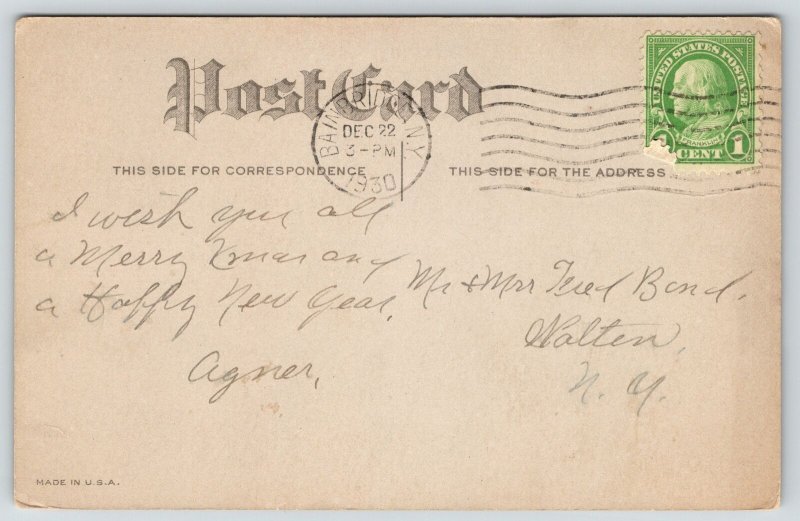 Post Card
UNITED STATES POSTAGE
FRANKLIN
1 CENT 1
BAINBRIDGE N.Y.
DEC 22
3-PM
1930
THIS SIDE FOR CORRESPONDENCE
THIS SIDE FOR THE ADDRESS
I wish you all
a Merry Xmas and
a Happy New Year.
Agnes.
Mr & Mrs Fred Bond.
Walton,
N. Y.
MADE IN U.S.A.